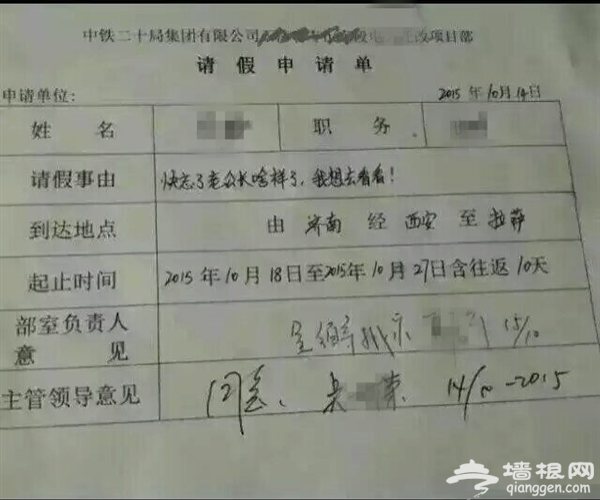 中铁二十局集团有限公司 改项目部
请假申请单
申请单位： 2015年10月14日
姓名 职务
请假事由 快忘了老公长啥样了，我想去看看！
到达地点 由 济南 经 西安 至 拉萨
起止时间 2015年10月18日至2015年10月27日含往返10天
部室负责人 15/10
意见
主管领导意见 同意、 14/10-2015
墙根网
qianggen.com